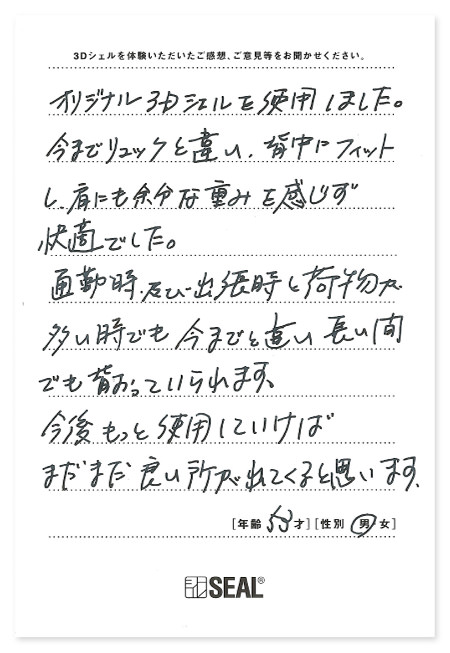 3Dシェルを体験いただいたご感想、ご意見等をお聞かせください。
オリジナル3Dシェルを使用しました。
今までリュックと違い、背中にフィット
し、肩にも余分な重みを感じず
快適でした。
通勤時、及び出張時と荷物が
多い時でも今までと違い長い間
でも背おっていられます。
今後もっと使用していけば
まだまだ良い所が出てくると思います。
[年齢 53才][性別 男・女]
SEAL®